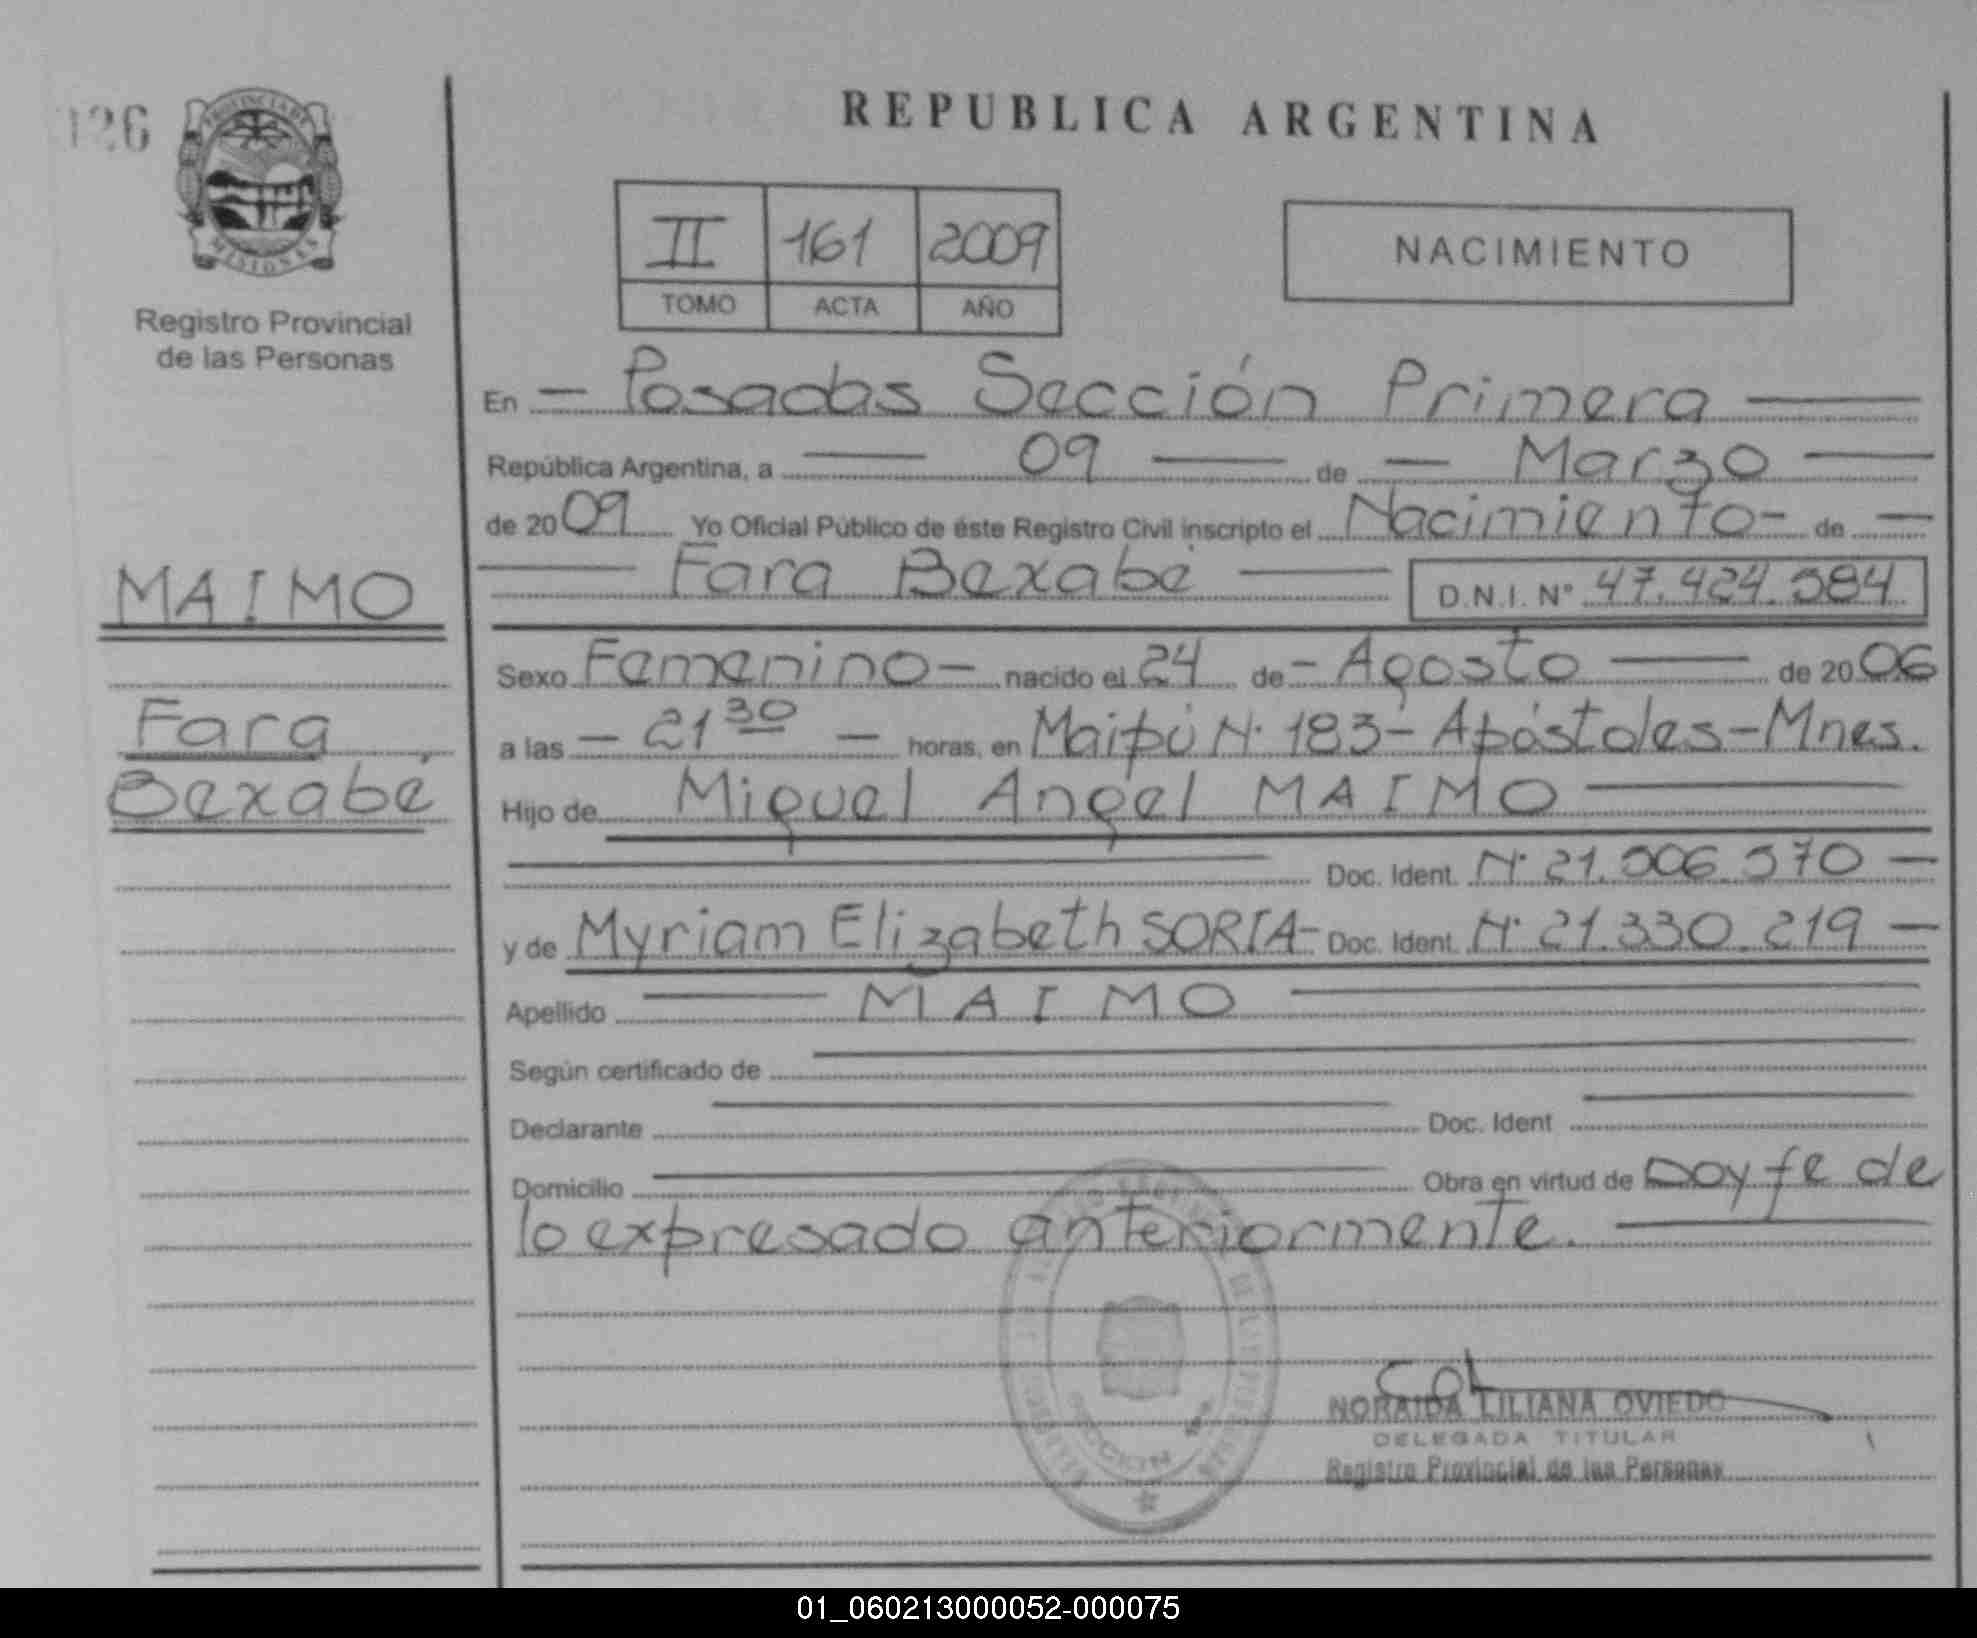 126
PROVINCIA DE
MISIONES
Registro Provincial
de las Personas
REPUBLICA ARGENTINA
II 161 2009
TOMO ACTA AÑO
NACIMIENTO
En — Posadas Sección Primera —
República Argentina, a — 09 — de — Marzo —
de 2009 Yo Oficial Público de éste Registro Civil inscripto el Nacimiento - de —
— Fara Bexabé — D.N.I. N° 47.424.584
MAIMO
Fara
Bexabé
Sexo Femenino — nacido el 24 de - Agosto — de 2006
a las — 21 30 — horas, en Maipú N° 183 - Apóstoles - Mnes.
Hijo de Miguel Angel MAIMO —
— Doc. Ident. N° 21.506.570 —
y de Myriam Elizabeth SORIA - Doc. Ident. N° 21.330.219 —
Apellido — MAIMO —
Según certificado de —
Declarante — Doc. Ident —
Domicilio — Obra en virtud de Doy fe de
lo expresado anteriormente. —
SECCION
NORAIDA LILIANA OVIEDO
DELEGADA TITULAR
Registro Provincial de las Personas
01_060213000052-000075